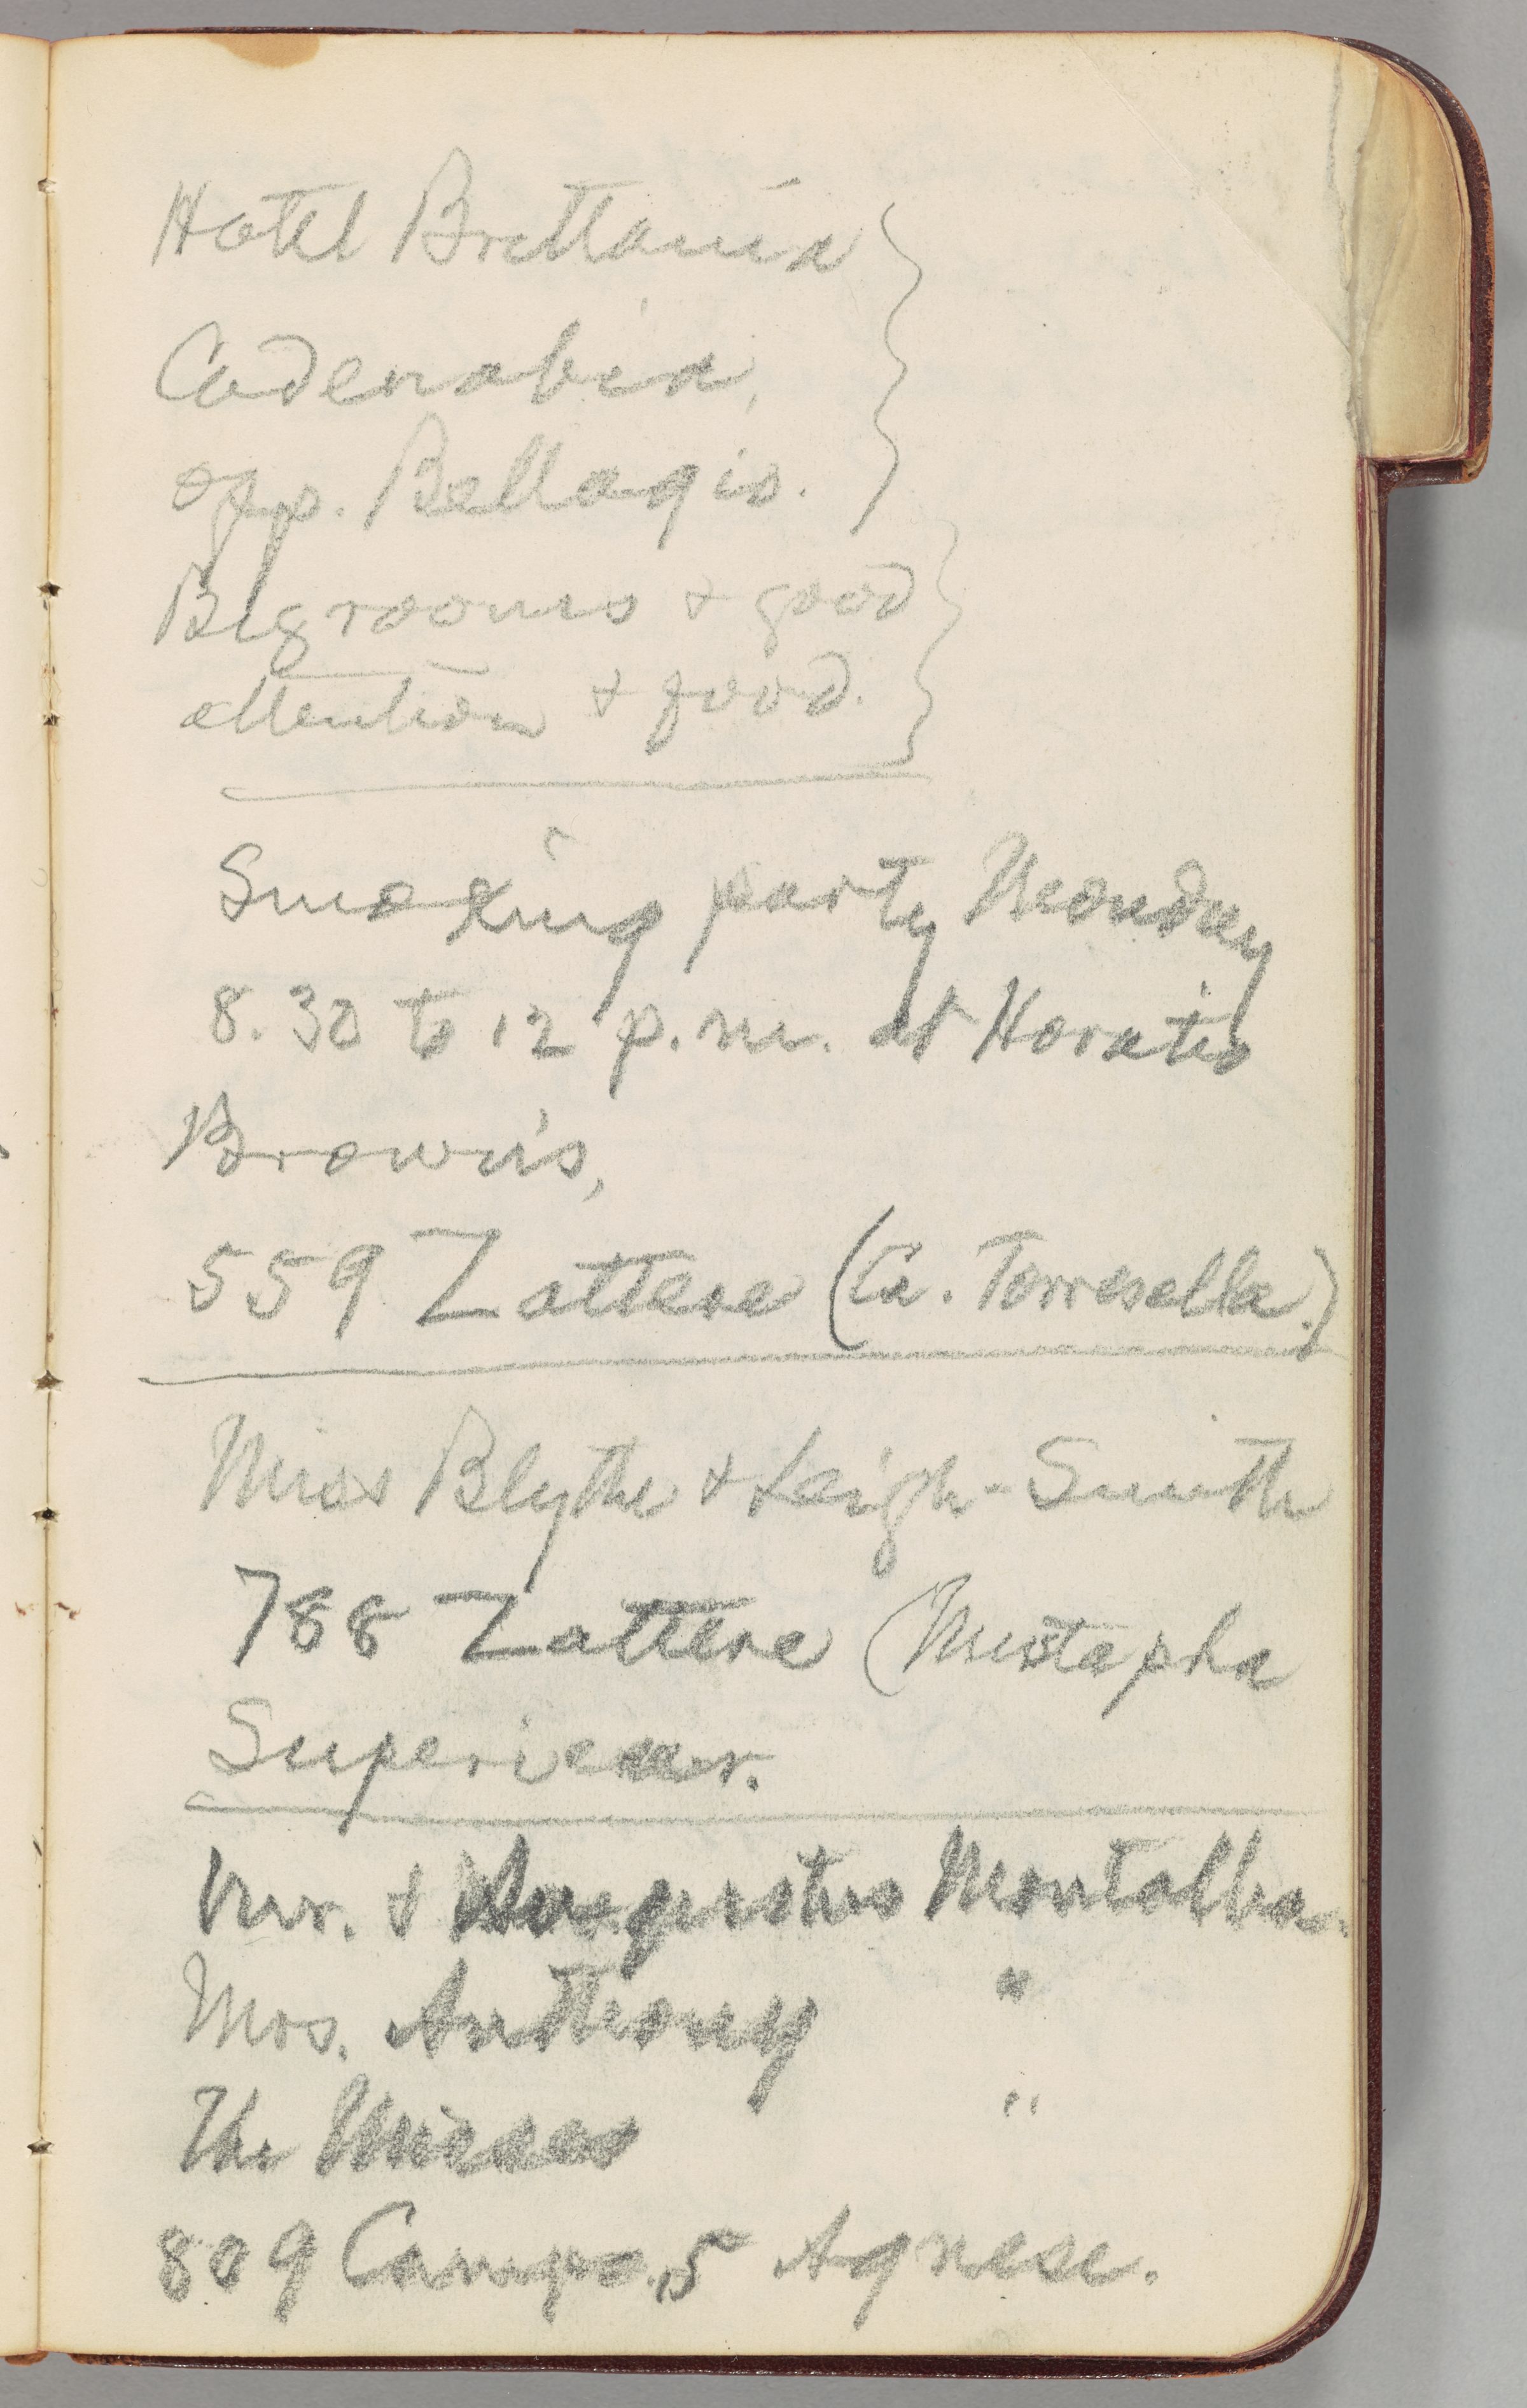 Hotel Brittania
Cadenabia,
opp. Bellagio.
Big rooms & good
attention & food.
Smoking party Monday
8.30 to 12 p.m. at Horatio
Brown's,
559 Zattere (Ca. Torresella.)
Miss Blythe & Leigh-Smith
788 Zattere (Mustapha
Superieur.
Mr. & Augustus Montalba.
Mrs. Anthony "
The Misses "
809 Campo. S Agnese.